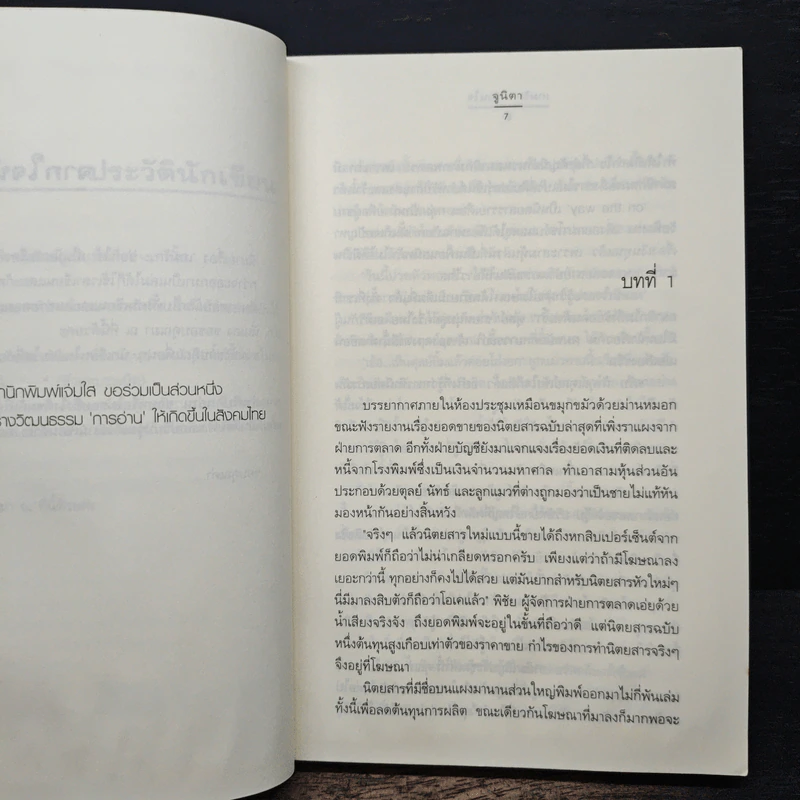 นักพิมพ์แจ่มใส ขอร่วมเป็นส่วนหนึ่ง
างวัฒนธรรม 'การอ่าน' ให้เกิดขึ้นในสังคมไทย
จูนิตา
7
บทที่ 1
บรรยากาศภายในห้องประชุมเหมือนขมุกขมัวด้วยม่านหมอก
ขณะฟังรายงานเรื่องยอดขายของนิตยสารฉบับล่าสุดที่เพิ่งราแผงจาก
ฝ่ายการตลาด อีกทั้งฝ่ายบัญชียังมาแจกแจงเรื่องยอดเงินที่ติดลบและ
หนี้จากโรงพิมพ์ซึ่งเป็นเงินจำนวนมหาศาล ทำเอาสามหุ้นส่วนอัน
ประกอบด้วยตุลย์ นัทธ์ และลูกแมวที่ต่างถูกมองว่าเป็นชายไม่แท้หัน
มองหน้ากันอย่างสิ้นหวัง
"จริงๆ แล้วนิตยสารใหม่แบบนี้ขายได้ถึงหกสิบเปอร์เซ็นต์จาก
ยอดพิมพ์ก็ถือว่าไม่น่าเกลียดหรอกครับ เพียงแต่ว่าถ้ามีโฆษณาลง
เยอะกว่านี้ ทุกอย่างก็คงไปได้สวย แต่มันยากสำหรับนิตยสารหัวใหม่ๆ
นี่มีมาลงสิบตัวก็ถือว่าโอเคแล้ว" พิชัย ผู้จัดการฝ่ายการตลาดเอ่ยด้วย
น้ำเสียงจริงจัง ถึงยอดพิมพ์จะอยู่ในขั้นที่ถือว่าดี แต่นิตยสารฉบับ
หนึ่งต้นทุนสูงเกือบเท่าตัวของราคาขาย กำไรของการทำนิตยสารจริงๆ
จึงอยู่ที่โฆษณา
นิตยสารที่มีชื่อบนแผงมานานส่วนใหญ่พิมพ์ออกมาไม่กี่พันเล่ม
ทั้งนี้เพื่อลดต้นทุนการผลิต ขณะเดียวกันโฆษณาที่มาลงก็มากพอจะ